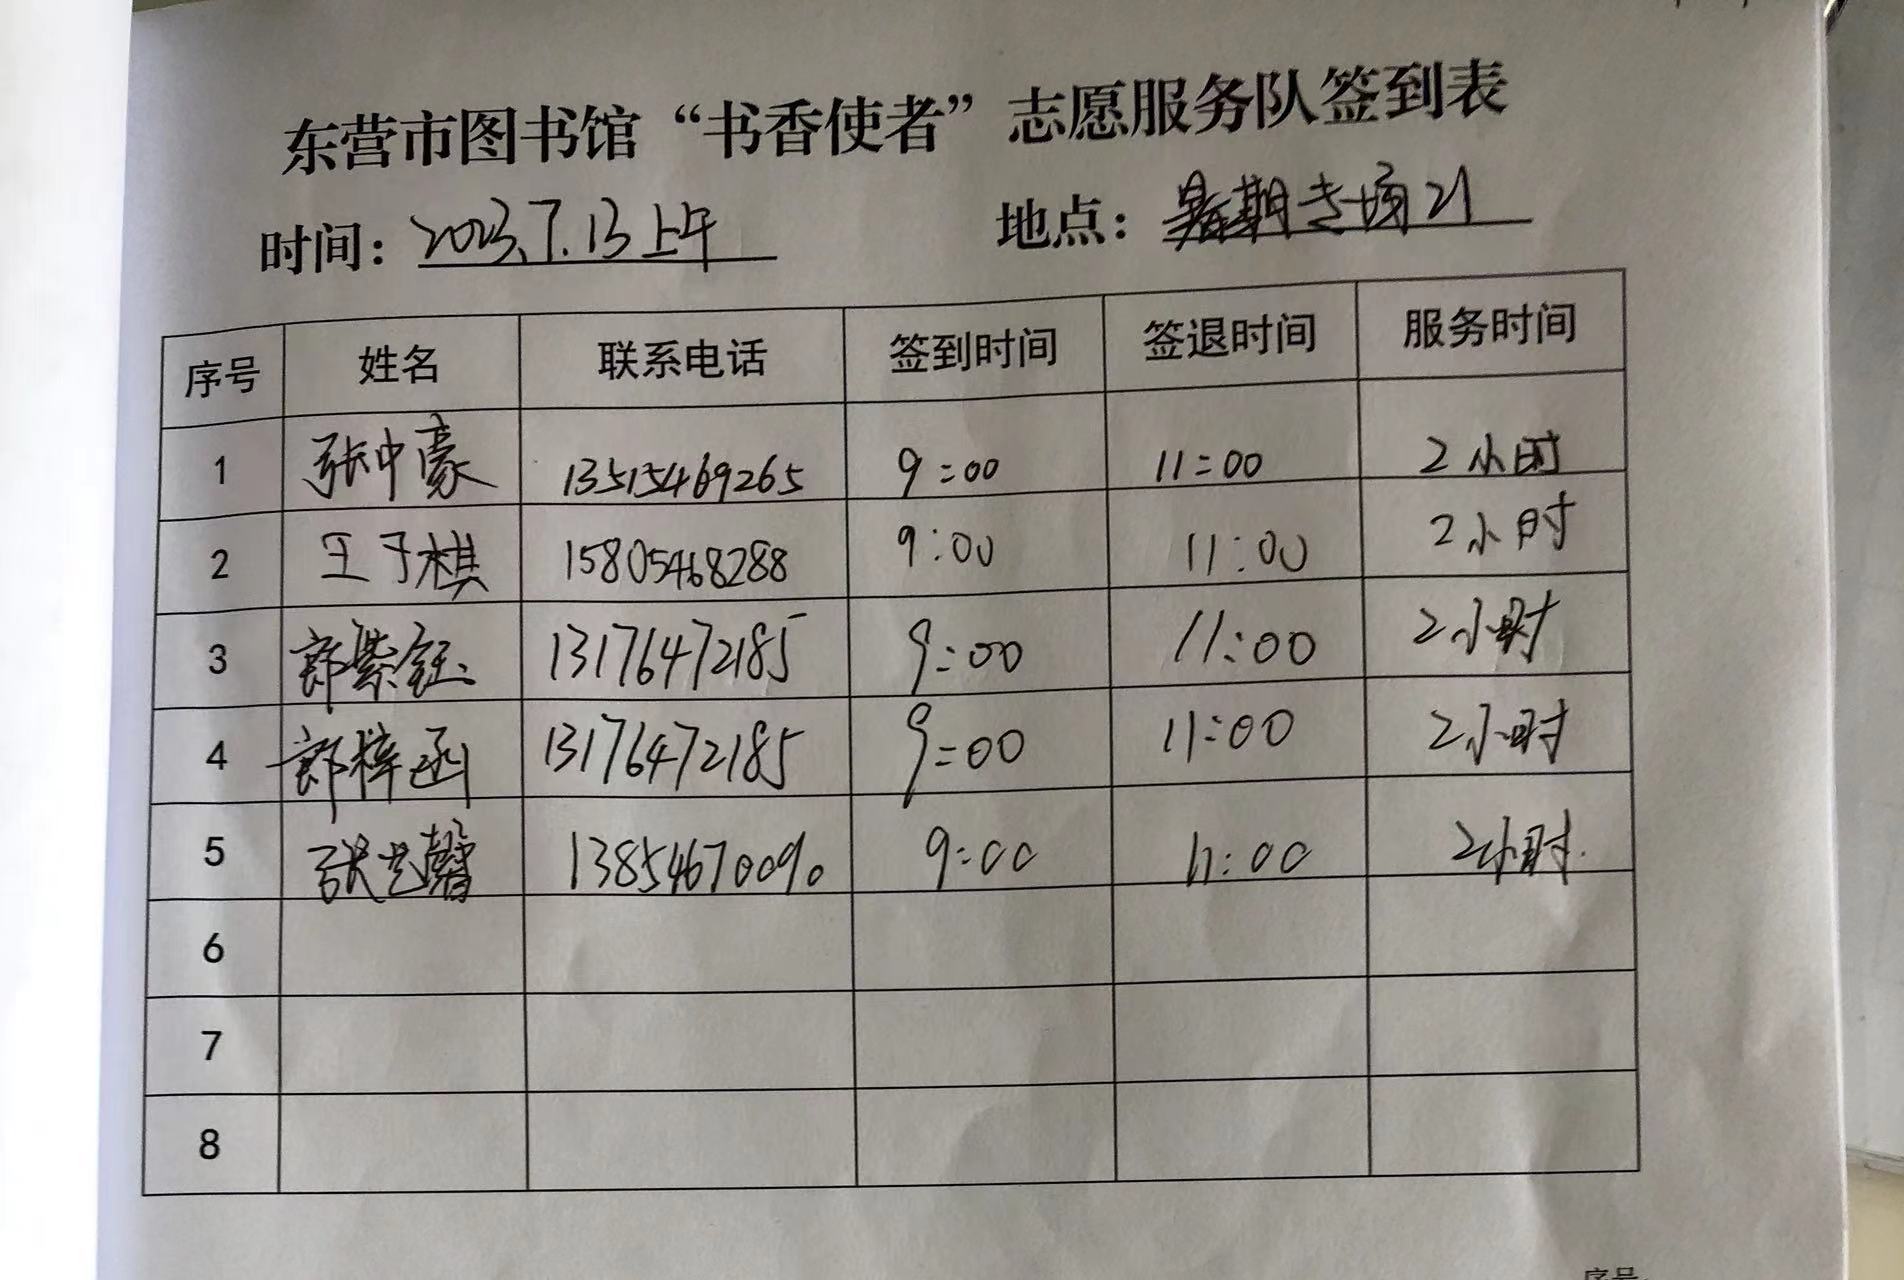 东营市图书馆“书香使者”志愿服务队签到表
时间：2023.7.13上午 地点：暑期专场21
序号 姓名 联系电话 签到时间 签退时间 服务时间
1 张中豪 13515469265 9:00 11:00 2小时
2 王子棋 15805468288 9:00 11:00 2小时
3 郭紫钰 13176472185 9:00 11:00 2小时
4 郭梓函 13176472185 9:00 11:00 2小时
5 张艺馨 13854670090 9:00 11:00 2小时
6
7
8
序号